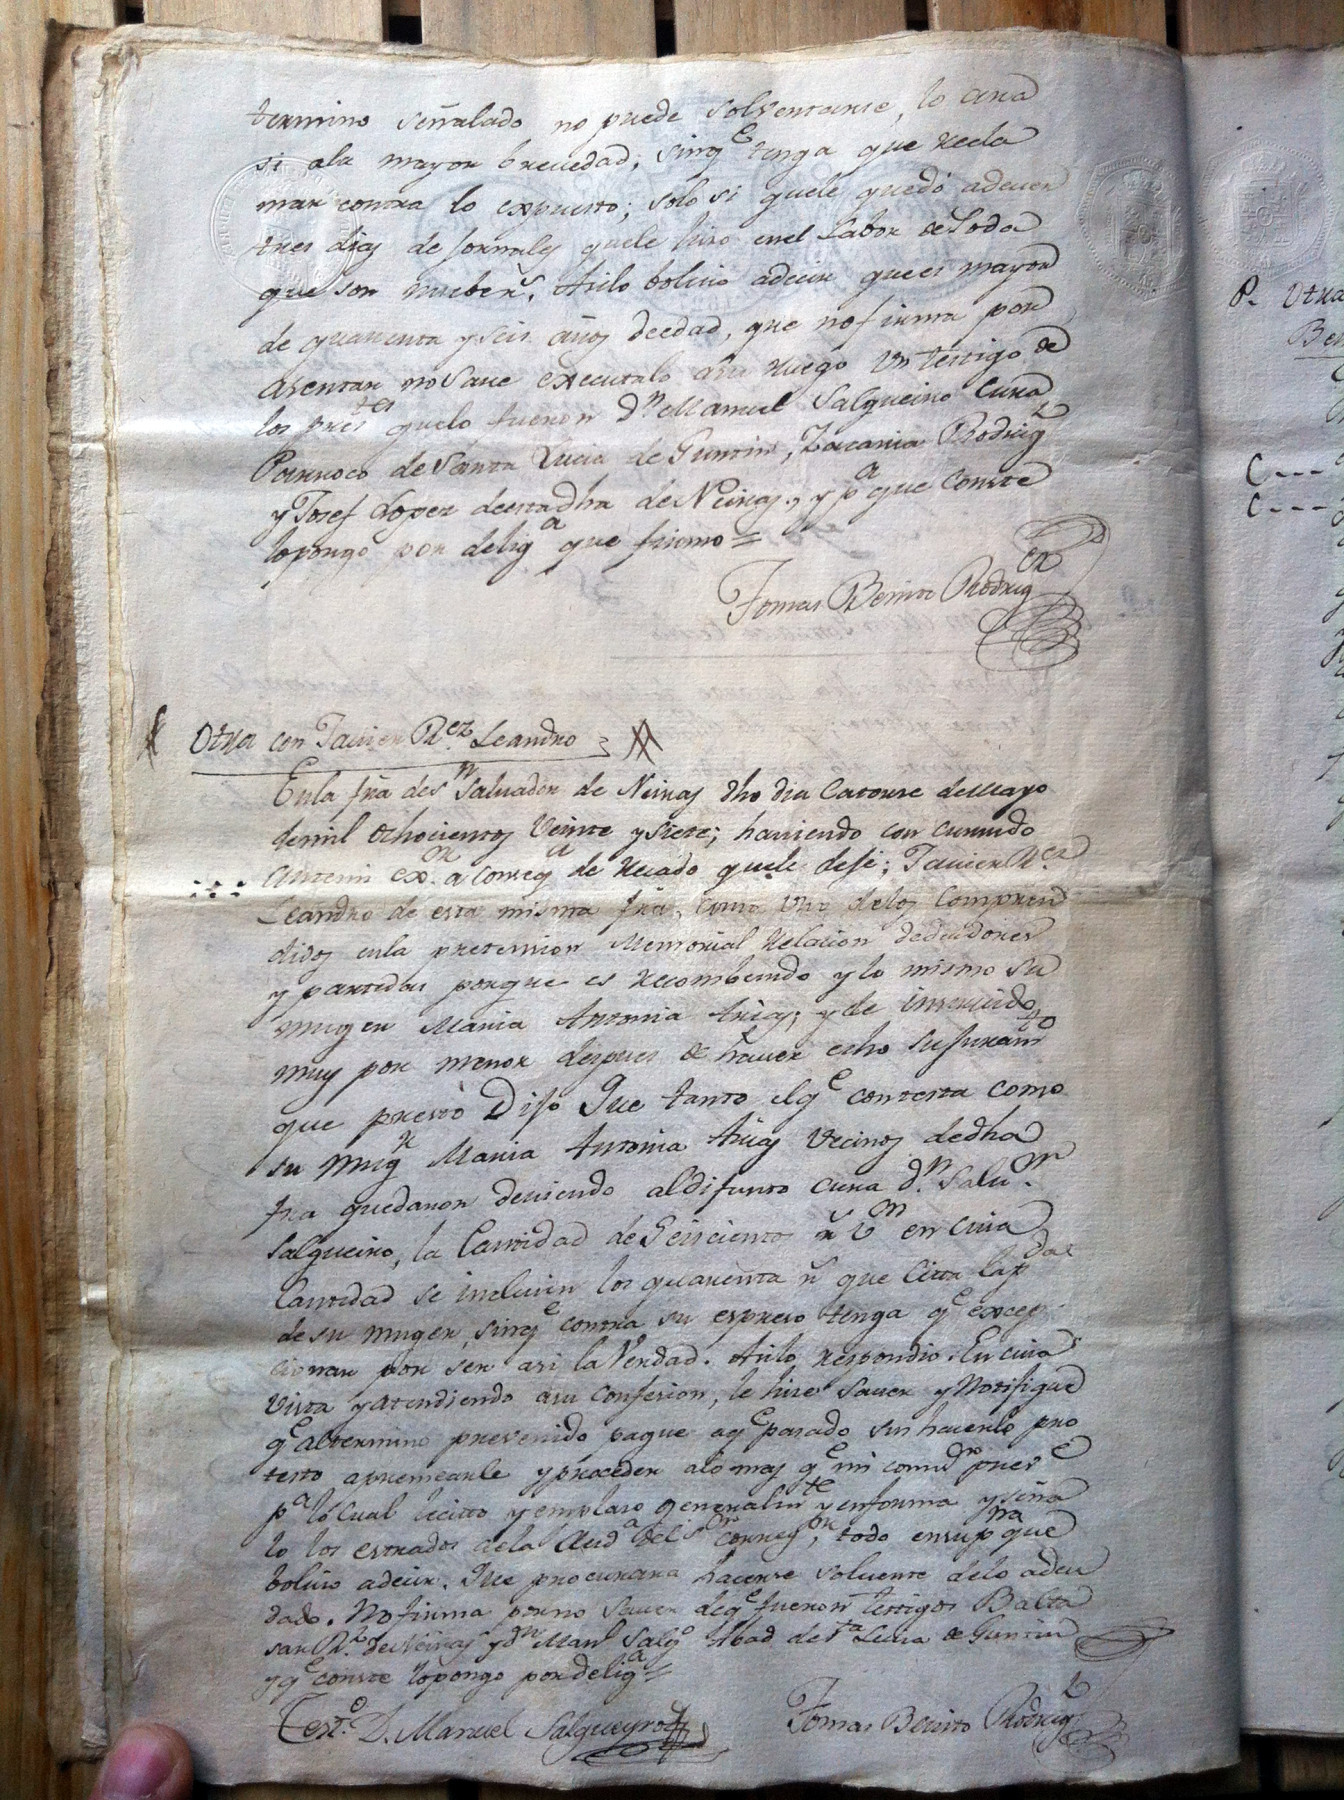 termino señalado no puede solventarse, lo ara
si ala mayor brevedad; sinqe tenga que recla
mar contra lo expuesto; solo si quele quedó adever
tres dias de Jornales quele hiso enel Labor de Soda
que son nuebe rs. Asilo bolvio adecir que es mayor
de quarenta y seis años deedad, que nofirma por
asentar no save executalo asu ruego un testigo de
los prestes quelo fueron Dn Manuel Salgueiro Cura
Parroco de Santa Lucia de Guntin, Zacaria Rodrigz
y Josef Lopez deestadha de Neiras, y pa que Conste
lopongo por deliga que firmo =
Tomas Benito Rodrigez
Otra con Javier Rez. Leandro
Enla fra desn Salvador de Neiras dho dia Catorse demayo
demil ochocientos Veinte ysiete; haviendo con currido
antemi exn. a conseqa de recado quele dejé; Javier Rez
Leandro de esta misma fra, como Uno delos Compren
didos enla pretension Memorial Relacion dedeudores
y partidas porque es recombenido y lo mismo su
muger Maria Antonia Arias; y de insruido
muy por menor despues de haver echo sujuramto
que prestó Dijo Que tanto elqe contesta como
su mugr Maria Antonia Arias Vecinos dedha
fra quedaron deviendo aldifunto cura Dn. Salvr.
Salgueiro, la Cantidad de Seiscientos rs Vn en cuia
Cantidad se incluien los quarenta rs que Cita lapda
de su muger, sinqe contra su espreso tenga qe excep
cionar por ser asi laVerdad. Asilo respondio. Encuia
Vista yatendiendo asu Confesion, le hise saver y Notifiqué
qe altermino prevenido pague aqe pasado sin hacerlo pro
testo apremearle yproceder alo mas qe mi comisn previe
pa lo Cual lecito yemplaso generalmte y enforma yseña
lo los estrados dela Auda del Sor correxor, todo ensupna que
bolvio adecir. Que procurara hacerse solvente delo adeu
dado. Nofirma porno saver deqe fueron testigos Balta
sar Rz. deNeiras ydn Manl Salgo Abad de Sta Lucia de Guntin
yqe conste lopongo pordeliga =
Testo. D. Manuel Salgueyro
Tomas Benito Rodrigz
P. Otra
C---
C---